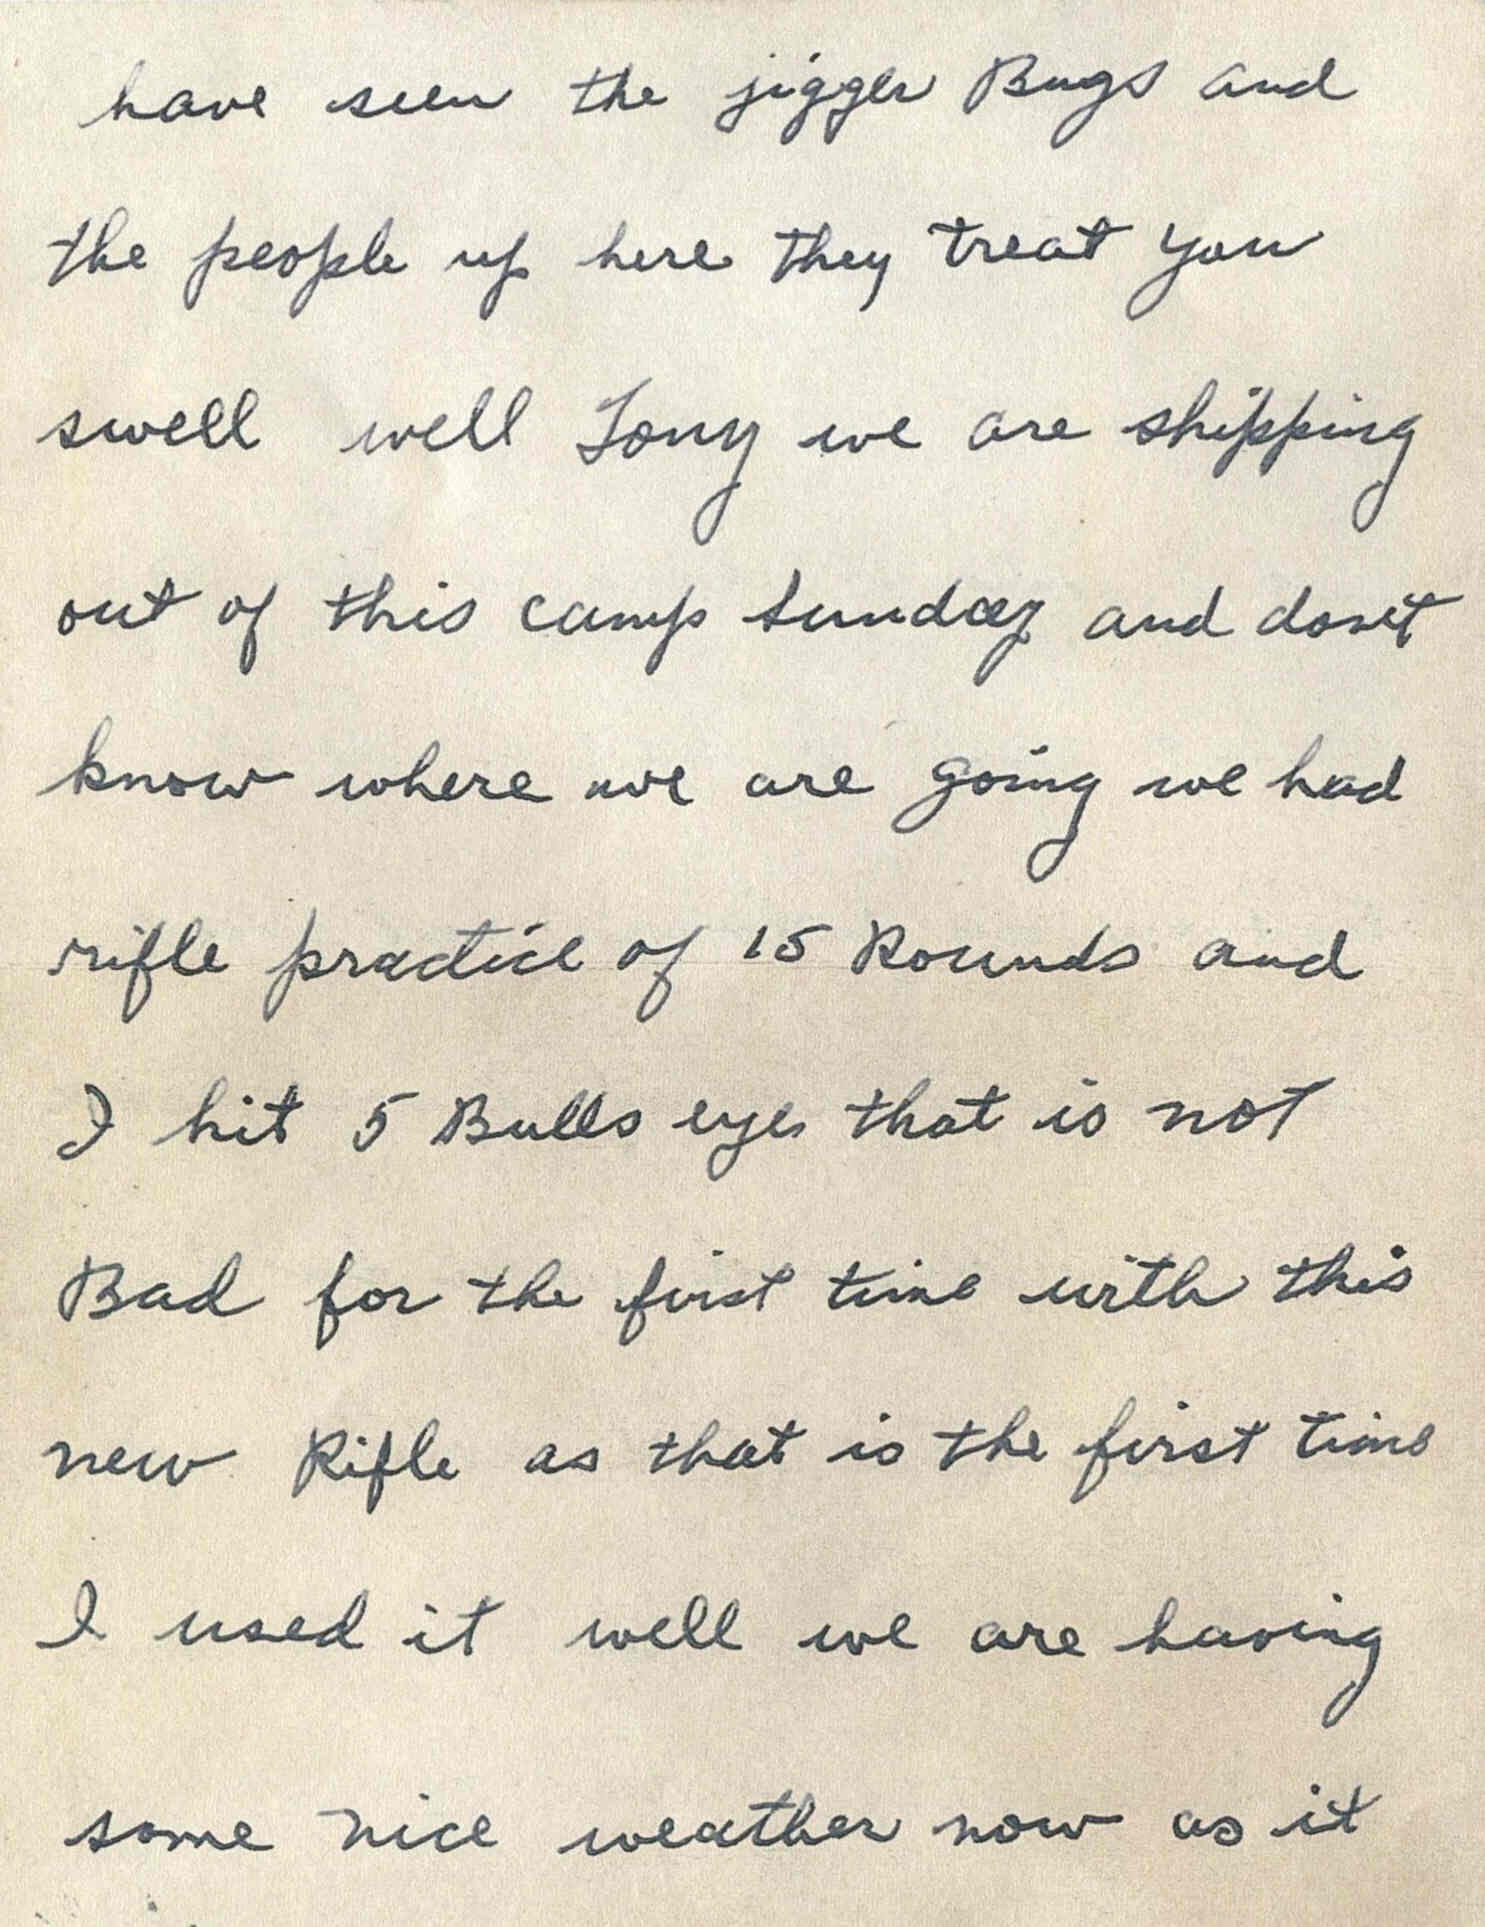 have seen the jigger Bugs and
the people up here they treat you
swell well Tony we are shipping
out of this camp sunday and don't
know where we are going we had
rifle practice of 15 Rounds and
I hit 5 Bulls eyes that is not
Bad for the first time with this
new Rifle as that is the first time
I used it well we are having
some nice weather now as it